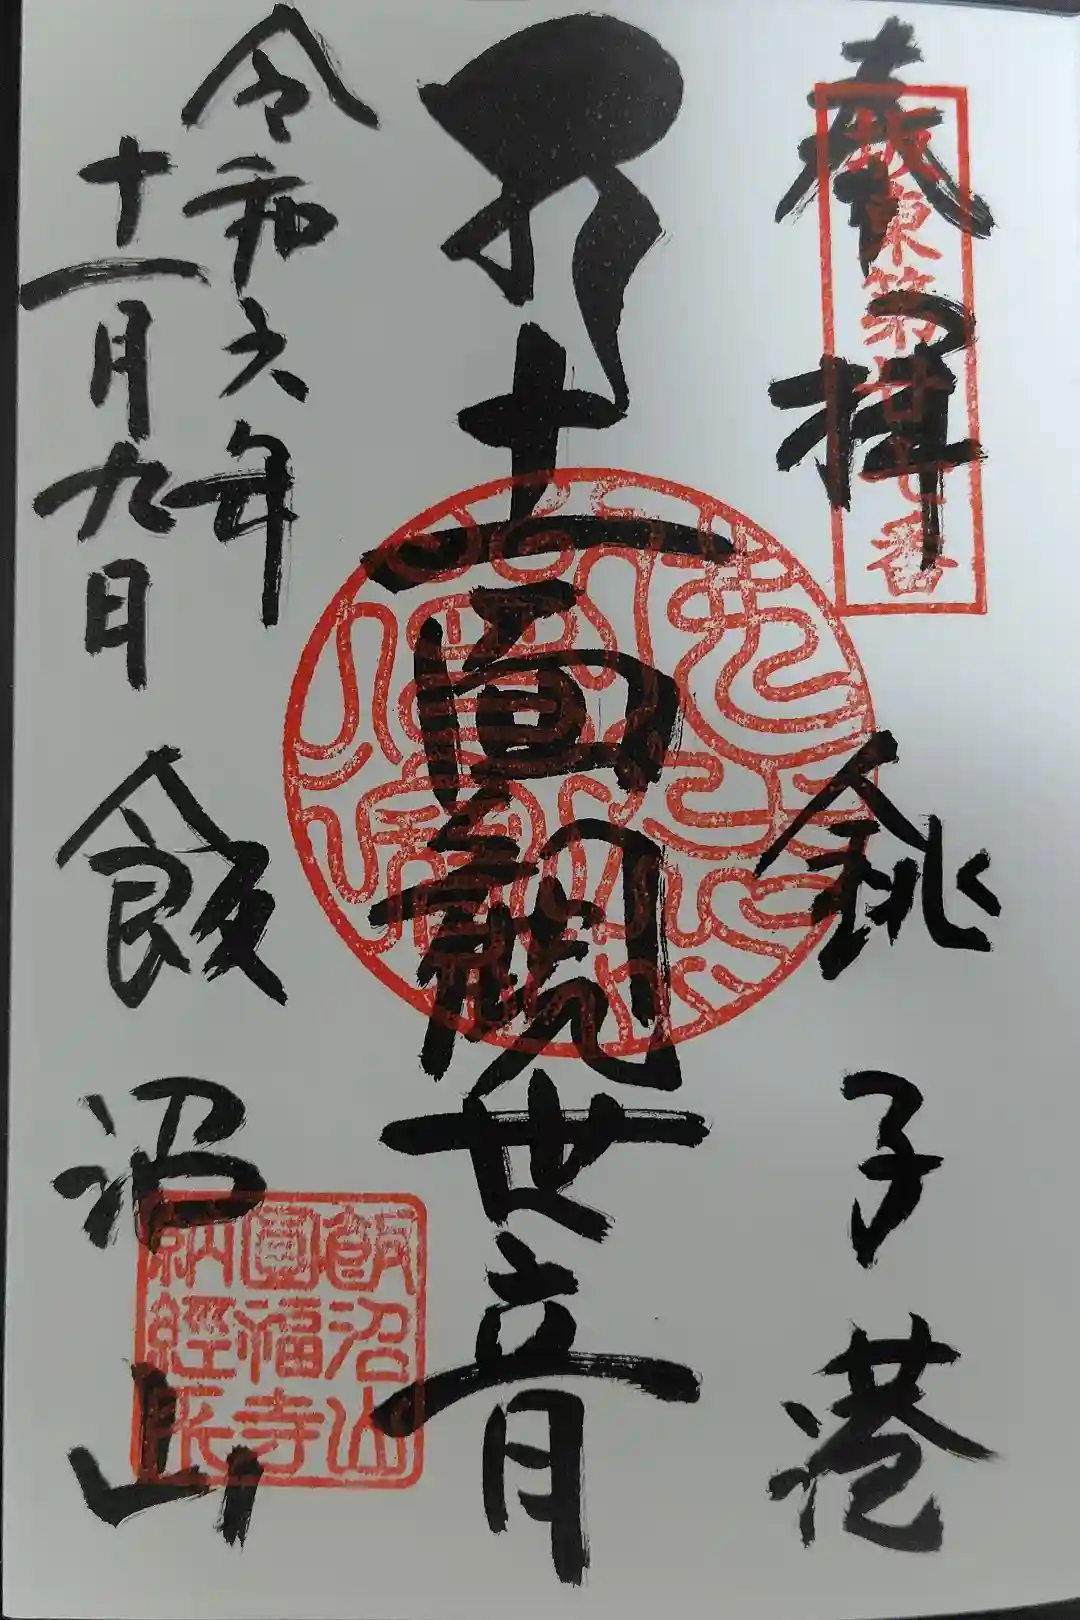 奉拝
坂東第廿七番
銚子港
十一面観世音
令和六年
十一月九日
飯沼山
飯沼山
圓福寺
納經